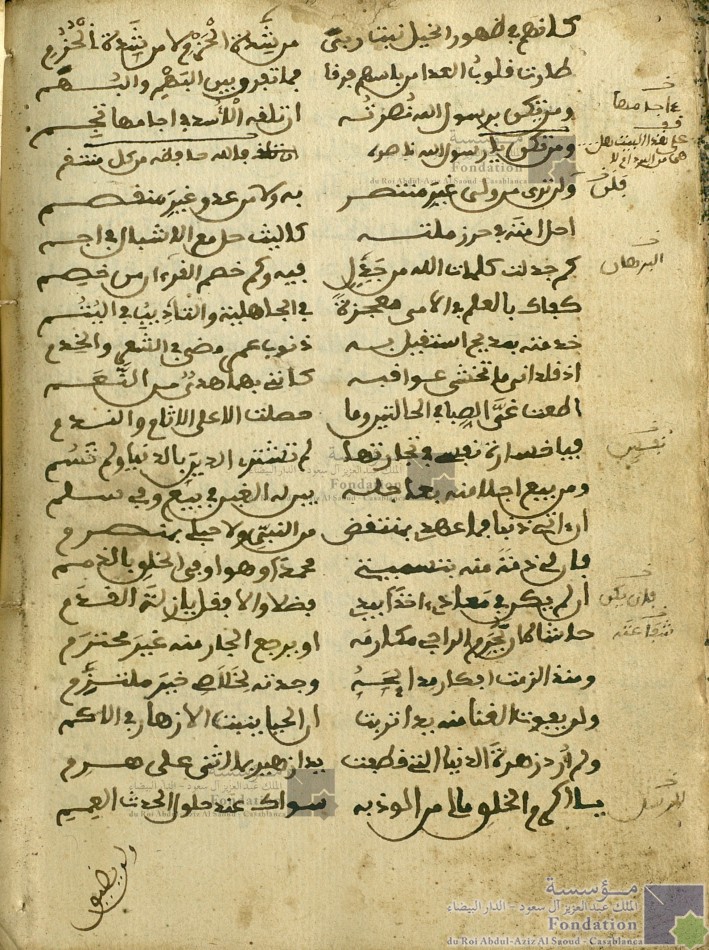 كأنهم في ظهور الخيل نبت ربى من شدة الحَزْم لا من شدة الحُزُم
طارت قلوب العدا من بأسهم فرقا فما تفرق بين البَهْم والبُهَم
ومن تكن برسول الله نصرته إن تلقه الأسد في آجامها تجم
ومن تكن برسول الله ناصره فالله حافظه من كل منتقم
ولن ترى من ولي غير منتصر به ولا من عدو غير منقصم
أحل أمته في حرز ملته كالليث حل مع الأشبال في أجم
كم جدلت كلمات الله من جدل فيه وكم خصم القرءان من خصم
كفاك بالعلم في الأمي معجزة في الجاهلية والتأديب في اليتم
خدمته بمديح استقيل به ذنوب عمر مضى في الشعر والخدم
إذ قلداني ما تخشى عواقبه كأنني بهما هدي من النعم
أطعت غي الصبا في الحالتين وما حصلت إلا على الآثام والندم
فيا خسارة نفس في تجارتها لم تشتر الدين بالدنيا ولم تسم
ومن يبع آجلا منه بعاجله يبن له الغبن في بيع وفي سلم
إن آت ذنبا فما عهدي بمنتقض من النبي ولا حبلي بمنصرم
فإن لي ذمة منه بتسميتي محمدا وهو أوفى الخلق بالذمم
إن لم يكن في معادي آخذا بيدي فضلا وإلا فقل يا زلة القدم
حاشاه أن يحرم الراجي مكارمه أو يرجع الجار منه غير محترم
ومنذ ألزمت أفكاري مدائحه وجدته لخلاصي خير ملتزم
ولن يفوت الغنا منه يدا تربت إن الحيا ينبت الأزهار في الأكم
ولم أرد زهرة الدنيا التي قطفت يدا زهير بما أثنى على هرم
يا أكرم الخلق ما لي من ألوذ به سواك عند حلول الحادث العمم
ولن يضيق
آجامها
على هذا البيت هل
فلن
البرهان
نفسي
فإن يكن
شفاعته
للرسل
مؤسسة
الملك عبد العزيز آل سعود - الدار البيضاء
Fondation
du Roi Abdul-Aziz Al Saoud - Casablanca